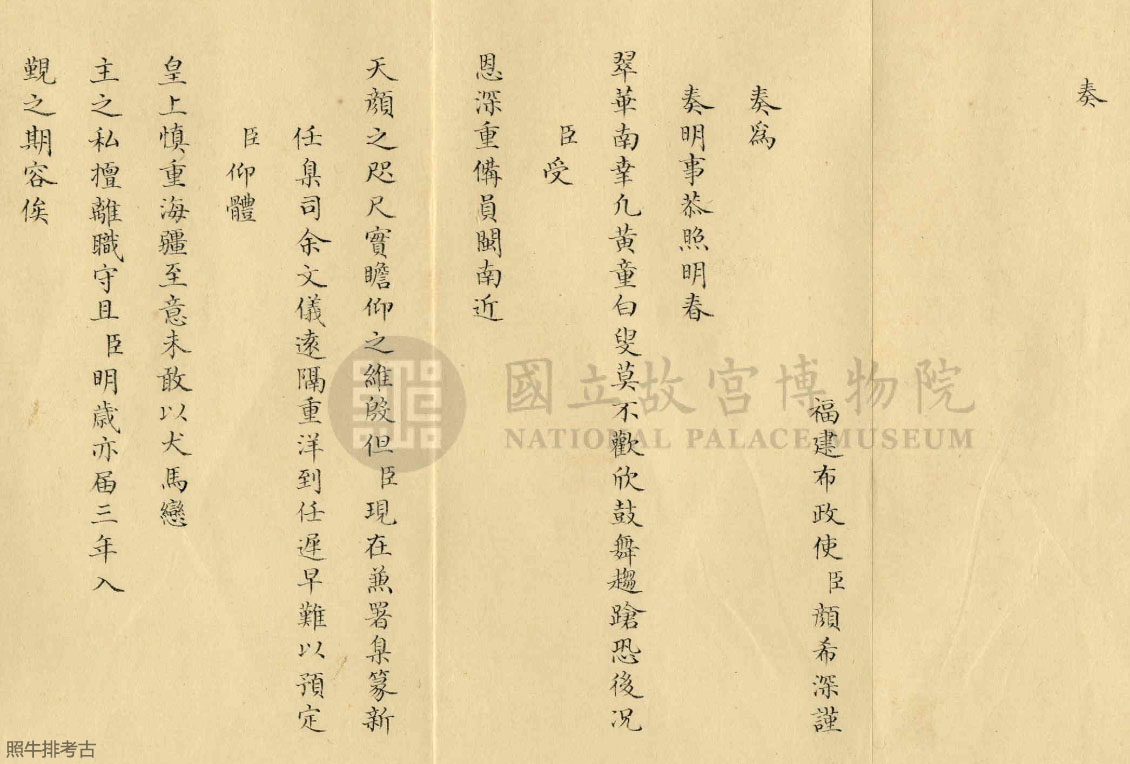 奏
福建布政使臣顔希深謹
奏爲
奏明事恭照明春
翠華南幸凢黄童白叟莫不歡欣鼓舞趨蹌恐後况
臣受
恩深重備員閩南近
天顔之咫尺實瞻仰之維殷但臣現在兼署臬篆新
任臬司余文儀遠隔重洋到任遲早難以預定
臣仰體
皇上慎重海疆至意未敢以犬馬戀
主之私擅離職守且臣明歲亦届三年入
覲之期容俟
國立故宮博物院
NATIONAL PALACE MUSEUM
照牛排考古